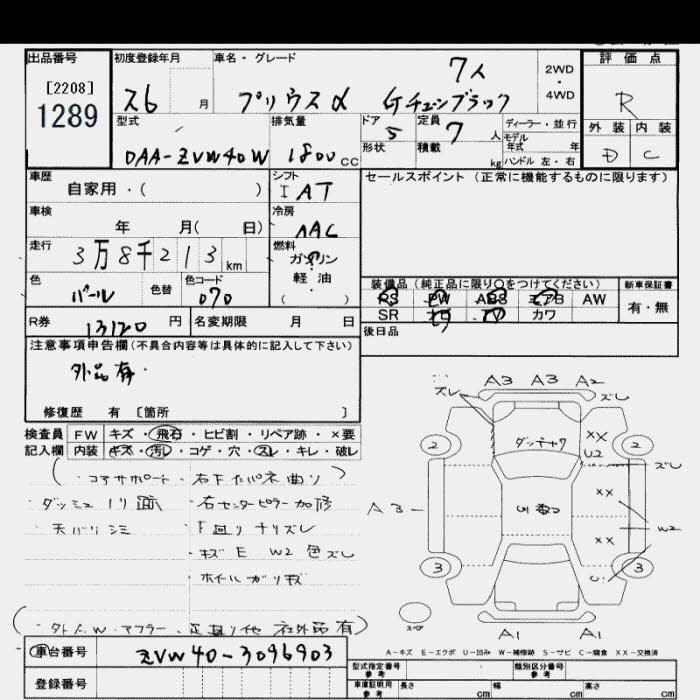 出品番号 初度登録年月 車名・グレード 評価点
[2208]
1289
7人
2WD
・
4WD
月 プリウスα Gチューンブラック
R
外装 内装
D C
型式 排気量 ドア 定員 ディーラー・並行
DAA-ZVW40W 1800cc 5 7人
モデル年式 年
形状 積載 kg ハンドル 左・右
車歴 シフト セールスポイント (正常に機能するものに限ります)
自家用・( ) I AT
車検 冷房
年 月( 日) AAC
走行 燃料
3万8千213km ガソリン
軽・油
( )
色 色替 色コード
パール 070
装備品 (純正品に限り○をつけてください) 新車保証書
PS PW ABS エアB AW 有・無
SR カワ
R券 13120円 名変期限 月 日
後日品
注意事項申告欄(不具合内容等は具体的に記入して下さい)
外品有・
修復歴 有 〔箇所 〕
検査員 FW キズ・飛石・ヒビ割・リペア跡・×要
記入欄 内装 キズ・汚レ・コゲ・穴・スレ・キレ・破レ
(・コアサポート・右F 曲り)
・ダッシュノリ跡 ・右センターピラー加修
・天バリシミ ・下廻リスレ
・キズE W2色ズレ
・ホイールガリキズ
マフラー 社外品有)
ズレ A3 A3 A2 ズレ
2 2
××
U2
ズレ
A3
××
W2
××
3 3
U
A1 A1
A-キズ E-エクボ U-凹み W-補修跡 S-サビ C-腐食 XX-交換済
車台番号 ZVW40-3096903
登録番号
型式指定番号 参考 類別区分番号 参考
車庫証明用 参考 長さ cm 幅 cm 高さ cm